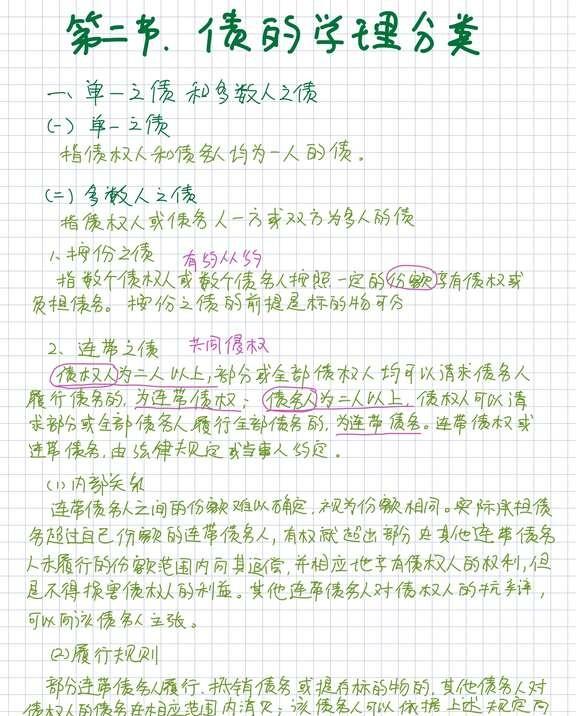 第二节、债的学理分类
一、单一之债和多数人之债
(一) 单一之债
指债权人和债务人均为一人的债。
(二) 多数人之债
指债权人或债务人一方或双方为多人的债
1、按份之债 有约从约
指数个债权人或数个债务人按照一定的份额享有债权或
负担债务。按份之债的前提是标的物可分
2、连带之债 共同侵权
债权人为二人以上,部分或全部债权人均可以请求债务人
履行债务的,为连带债权;债务人为二人以上,债权人可以请
求部分或全部债务人履行全部债务的,为连带债务。连带债权或
连带债务,由法律规定或当事人约定。
(1)内部关系
连带债务人之间的份额难以确定,视为份额相同。实际承担债
务超过自己份额的连带债务人,有权就超出部分在其他连带债务
人未履行的份额范围内向其追偿,并相应地享有债权人的权利,但
是不得损害债权人的利益。其他连带债务人对债权人的抗辩,
可以向该债务人主张。
(2)履行规则
部分连带债务人履行、抵销债务或提存标的物的,其他债务人对
债权人的债务在相应范围内消灭;该债务人可以依据上述规定向